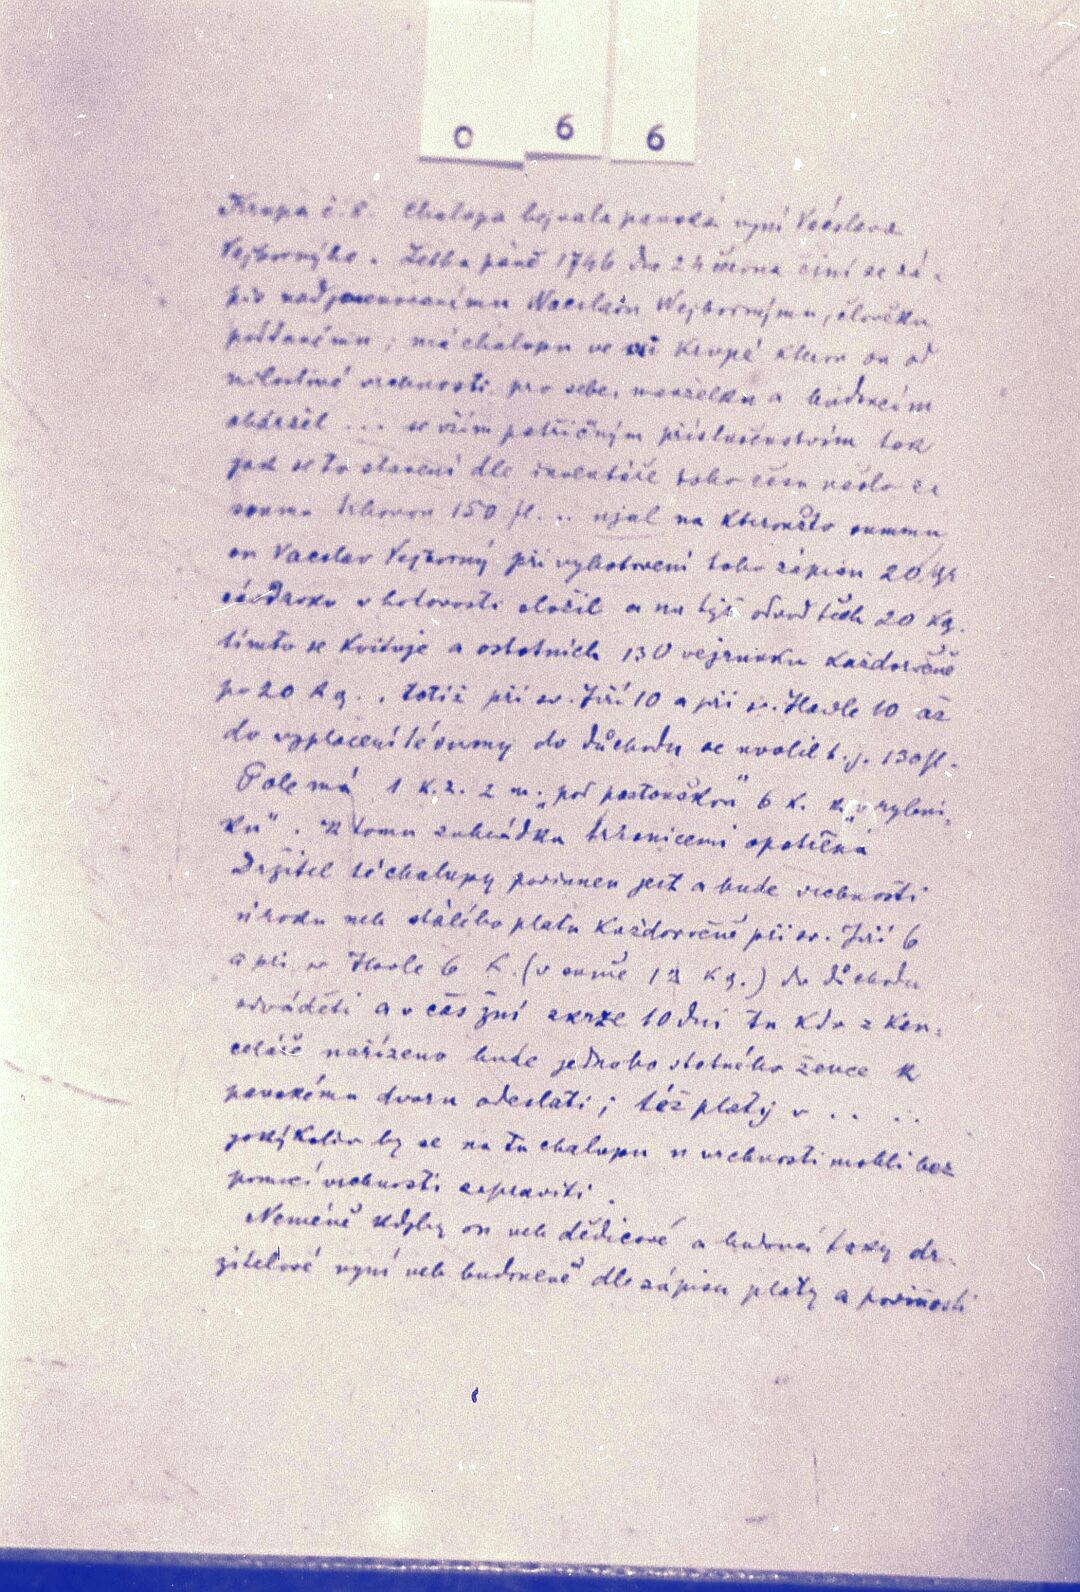 0 6 6
Krupa č. 8. Chalupa bejvala panská nyní Václava
Vejborného. Letha páně 1746 dne 24 června činí se zá-
pis nadjmenovanému Vacslavu Wejbornýmu, člověku
poddanému; má chalupu ve vsi Krupé kterou on od
milostivé vrchnosti pro sebe, manželku a budoucím
obdržel ... se vším patřičným příslušenstvím tak
jak se to stavení dle inventáře toho času našlo za
sumu trhovou 150 fl. .. ujal na kteroužto summu
on Vacslav Vejborný při vyhotovení toho zápisu 20
v hotovosti složil a na týž odvod těch 20 kg.
tímto se kvituje a ostatních 130 vejrunku každoročně
po 20 kg., totiž při sv. Jiří 10 a při sv. Havle 10 až
do vyplacení té sumy do důchodu se uvolil t. j. 130 fl.
Pole má 1 k. 2. 2 m. „pod pastouškou" 6 k. „v rybní-
ku". K tomu zahrádku tržnicemi
Držitel té chalupy povinnen jest a bude vrchnosti
úroku neb stálého platu každoročně při sv. Jiří 6
a při sv Havle 6 k. (v sumě 12 kg.) do důchodu
odváděti a v čas žní skrze 10 dní tu kdo z kan-
celáře nařízeno bude jednoho statného žence k
panskému dvoru odeslati; též platy v .. ..
jakýkoliv by se na tu chalupu u vrchnosti mohli bez
pomoci vrchnosti zapraviti.
Neméně kdyby on neb dědicové a budoucí taky dr-
žitelové nyní neb budoucně dle zápisu platy a povinosti